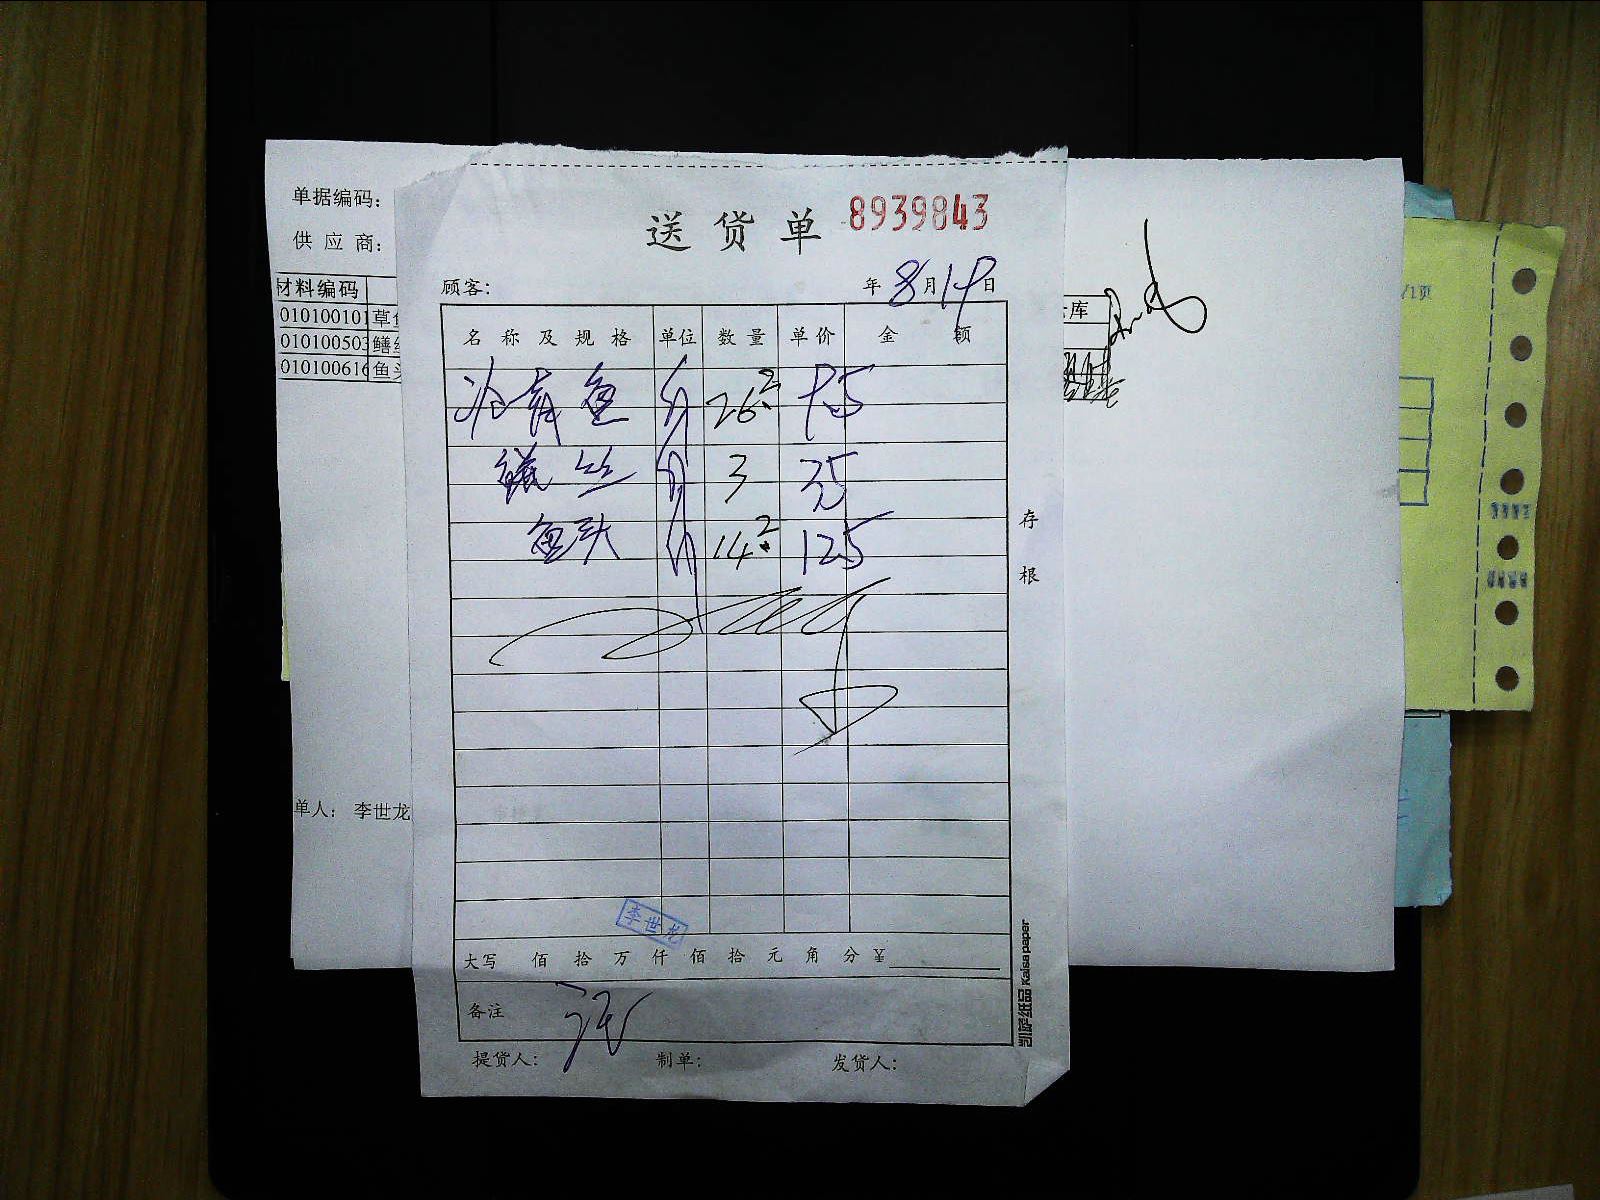 单据编码:
供 应 商:
材料编码
010100101 草鱼
010100503 鳝丝
010100616 鱼头
单人: 李世龙
送 货 单 8939843
顾客: 年 8 月 19 日
名 称 及 规 格 单位 数 量 单价 金 额
鱼 斤 26.2
鳝丝 斤 3 35
鱼头 斤 14.2 125
存
根
李世龙
大写 佰 拾 万 仟 佰 拾 元 角 分 ¥
备注
提货人: 制单: 发货人:
凯萨纸品 Kaisa paper
库
/1页